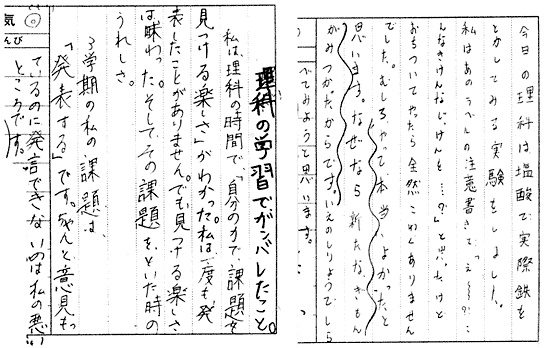 今日の理科は塩酸で実際鉄を
とかしてみる実験をしました。
私はあのラベルの注意書きで「え～～の…こ
んなきけんなじっけんを…の」と思ったけど
おちついてやったら全然こわくありません
でした。むしろやって本当によかったと
思います。なぜなら新たなぎもん
がみつかったからです。いえのしりょうでしら
べてみようと思います。
理科の学習でガンバしたこと。
私は、理科の時間で、「自分の力で、課題を
見つける楽しさ」がわかった。私は一度も、発
表したことがありません。でも見つける楽しさ
は味わった。そして、その課題をといた時の
うれしさ。
3学期の私の課題は、
「発表する」です。ちゃんと意見もっ
ているのに発言できないのは私の悪い
ところです。
気
んび